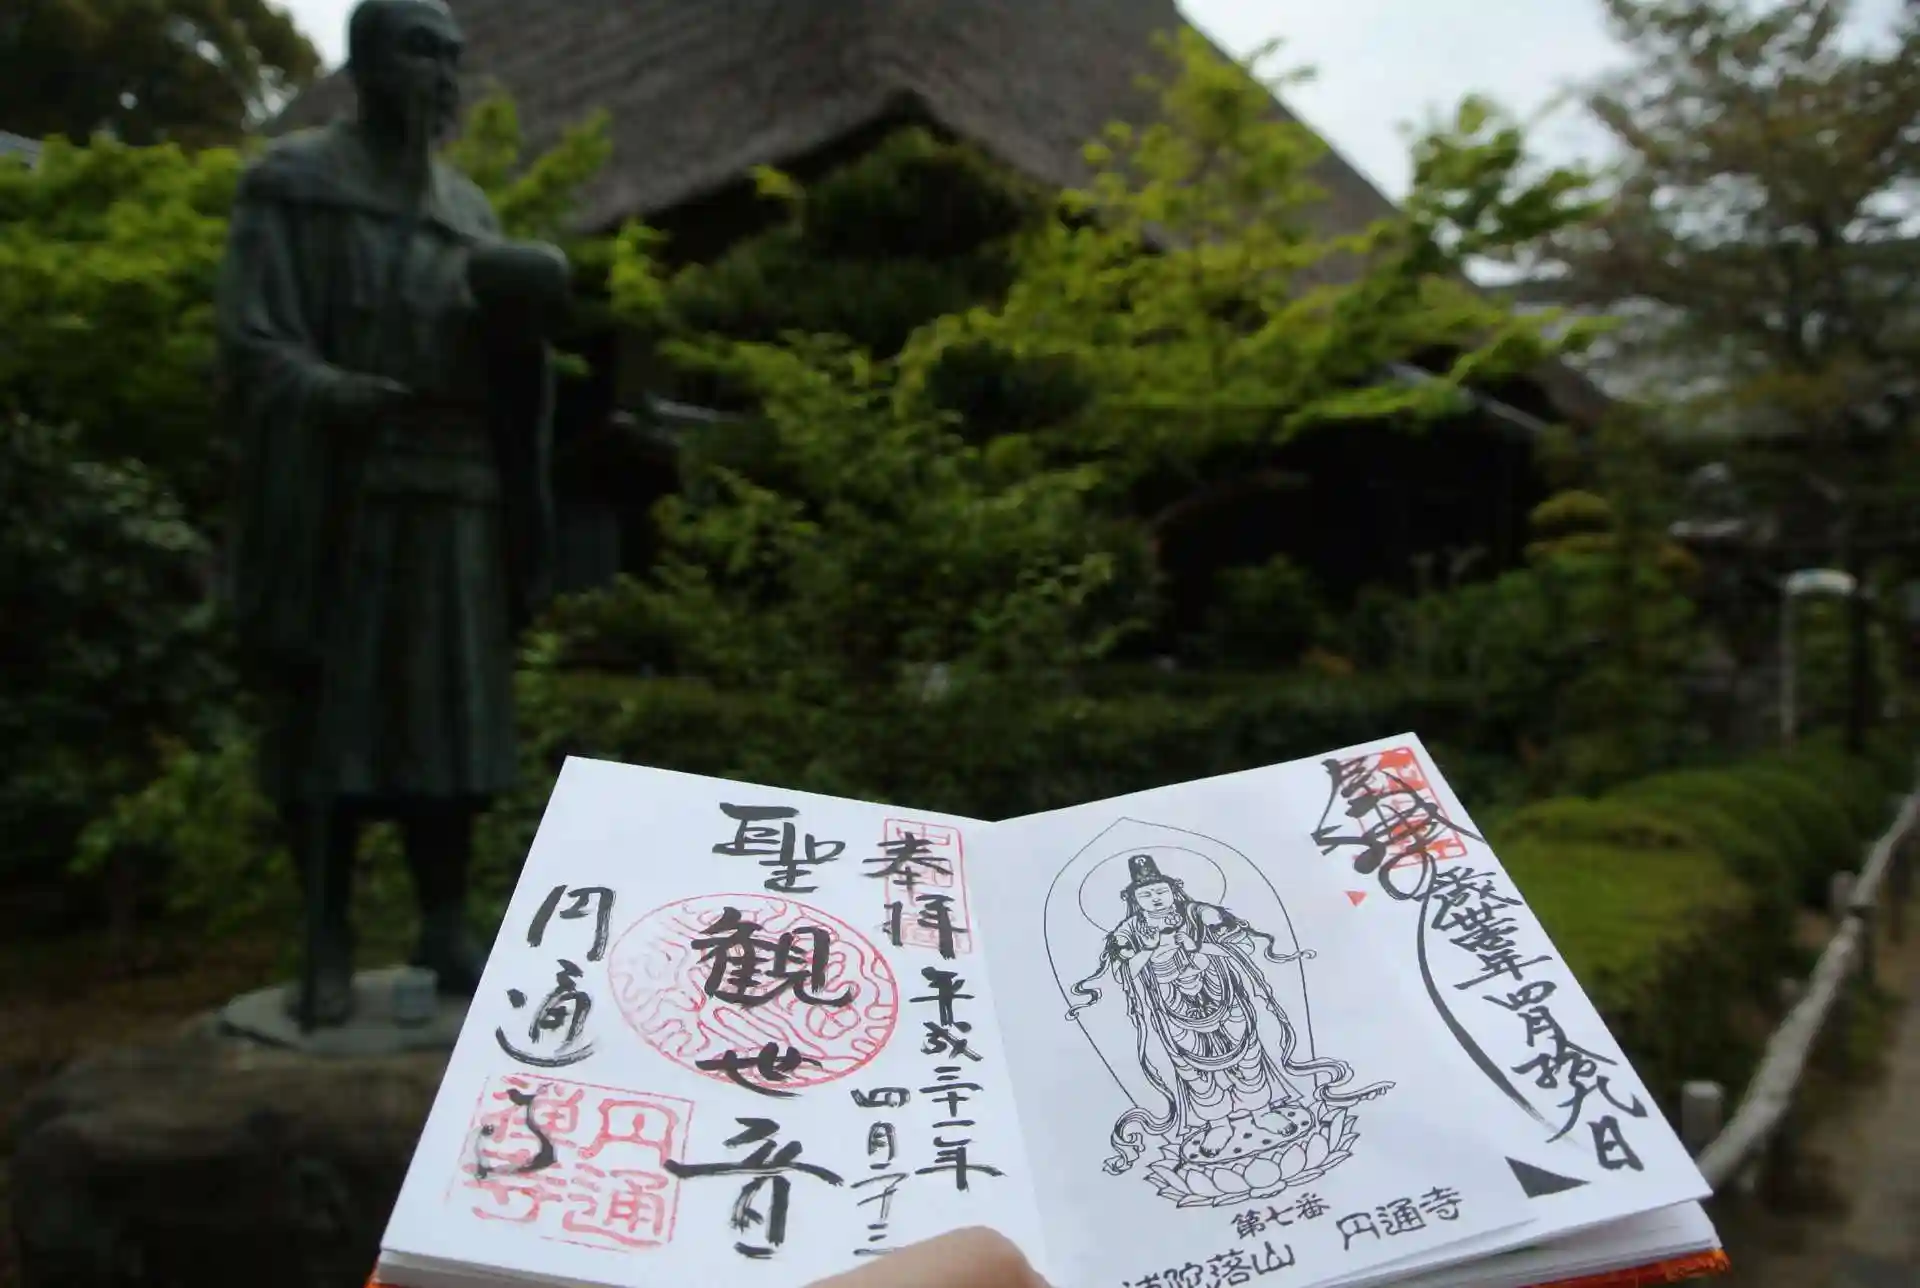 四月拾九日
第七番
補陀落山 円通寺
奉拝 平成三十一年
四月二十三
聖観世音
円通寺
円通
禅寺